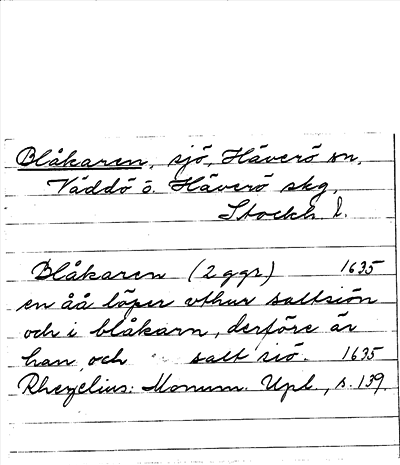 Blåkaren, sjö, Häverö sn,
Väddö o. Häverö skg,
Stockh. l.
Blåkaren (2 ggr) 1635
en åå löper vthur saltsiön
och i blåkarn, derföre är
han och salt siö. 1635
Rhezelius: Monum. Upl., s. 139.